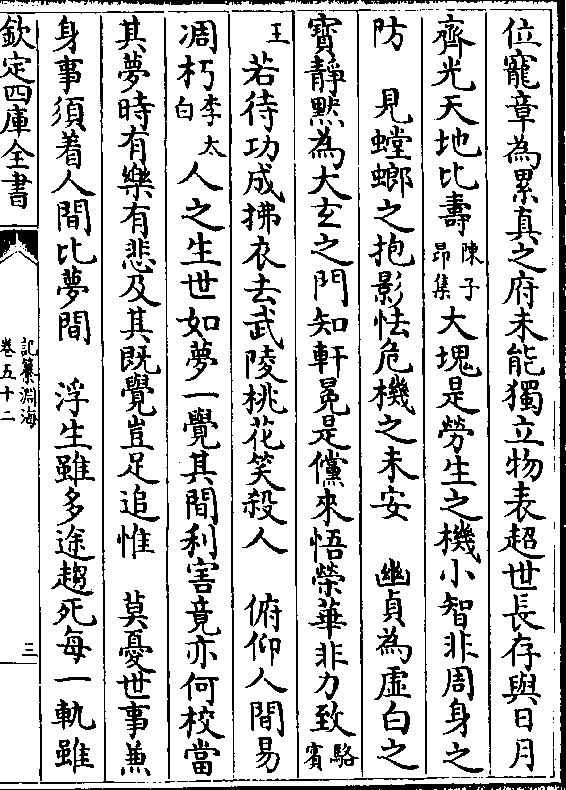 位寵章為累真之府未能獨立物表超世長存與日月
齊光天地比壽陳子昻集大塊是勞生之機小智非周身之
防　見螳螂之抱影怯危機之未安　幽貞為虛白之
寳靜黙為大玄之門知軒冕是儻來悟榮華非力致駱賓
王　若待功成拂衣去武陵桃花笑殺人　俯仰人間易
凋朽李太白人之生世如夢一覺其間利害竟亦何校當
其夢時有樂有悲及其既覺豈足追惟　莫憂世事兼
身事須着人間比夢間　浮生雖多途趨死每一軌雖
欽定四庫全書
記纂淵海
卷五十二
三